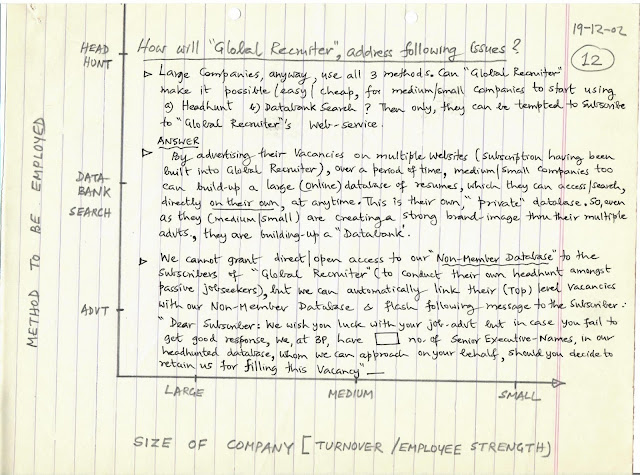 19-12-02
12
HEAD HUNT
DATA-BANK SEARCH
ADVT
METHOD TO BE EMPLOYED
How will "Global Recruiter", address following issues?
▷ Large Companies, anyway, use all 3 methods. Can "Global Recruiter"
make it possible/easy/cheap, for medium/small companies to start using
a) Headhunt b) Databank Search? Then only, they can be tempted to subscribe
to "Global Recruiter"'s Web-service.
ANSWER
▷ By advertising their Vacancies on multiple websites (subscription having been
built into Global Recruiter), over a period of time, medium/small companies too
can build-up a large (online) database of resumes, which they can access/search,
directly on their own, at anytime. This is their own, "private" database. So, even
as they (medium/small) are creating a strong brand-image thru their multiple
advts., they are building-up a "Databank".
▷ We cannot grant direct/open access to our "Non-Member Database" to the
subscribers of "Global Recruiter" (to conduct their own headhunt amongst
passive jobseekers), but we can automatically link their (Top) level vacancies
with our Non-Member Database & flash following message to the subscriber:
"Dear Subscriber: We wish you luck with your job-advt but in case you fail to
get good response, we, at 3P, have no. of Senior Executive-Names, in our
headhunted database, whom we can approach on your behalf, should you decide to
retain us for filling this Vacancy" —
LARGE MEDIUM SMALL
SIZE OF COMPANY [TURNOVER/EMPLOYEE STRENGTH)